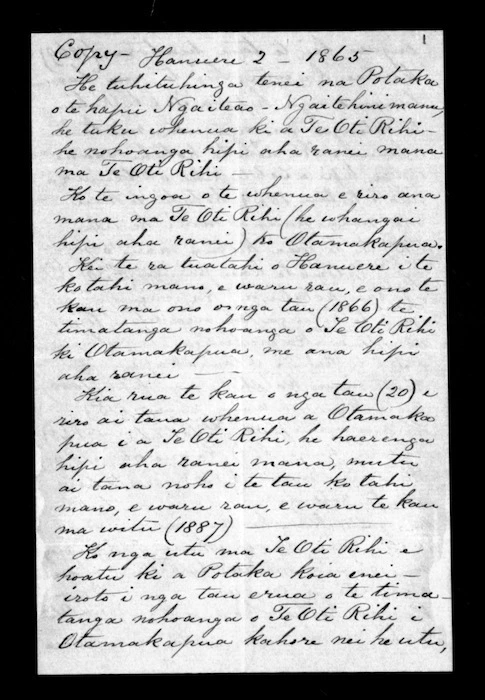 1
Copy - Hanuere 2 - 1865
He tuhituhinga tenei na Potaka
o te hapu Ngaiteao - Ngaitehinemanu,
he tuku whenua ki a Te Oti Rihi -
he nohoanga hipi aha ranei mana
ma Te Oti Rihi —
Ko te ingoa o te whenua e riro ana
mana ma Te Oti Rihi (he whangai
hipi aha ranei) ko Otamakapua.
Kei te ra tuatahi o Hanuere i te
kotahi mano, e waru rau, e ono te
kau ma ono o nga tau (1866) te
timatanga nohoanga o Te Oti Rihi
ki Otamakapua, me ana hipi
aha ranei —
Kia rua te kau o nga tau (20) e
riro ai taua whenua a Otamaka
pua i a Te Oti Rihi, he haerenga
hipi aha ranei mana, mutu
ai tana noho i te tau kotahi
mano, e waru rau, e waru te kau
ma witu (1887) —
Ko nga utu ma Te Oti Rihi e
hoatu ki a Potaka koia enei -
iroto i nga tau erua o te tima-
tanga nohoanga o Te Oti Rihi i
Otamakapua kahore nei he utu,